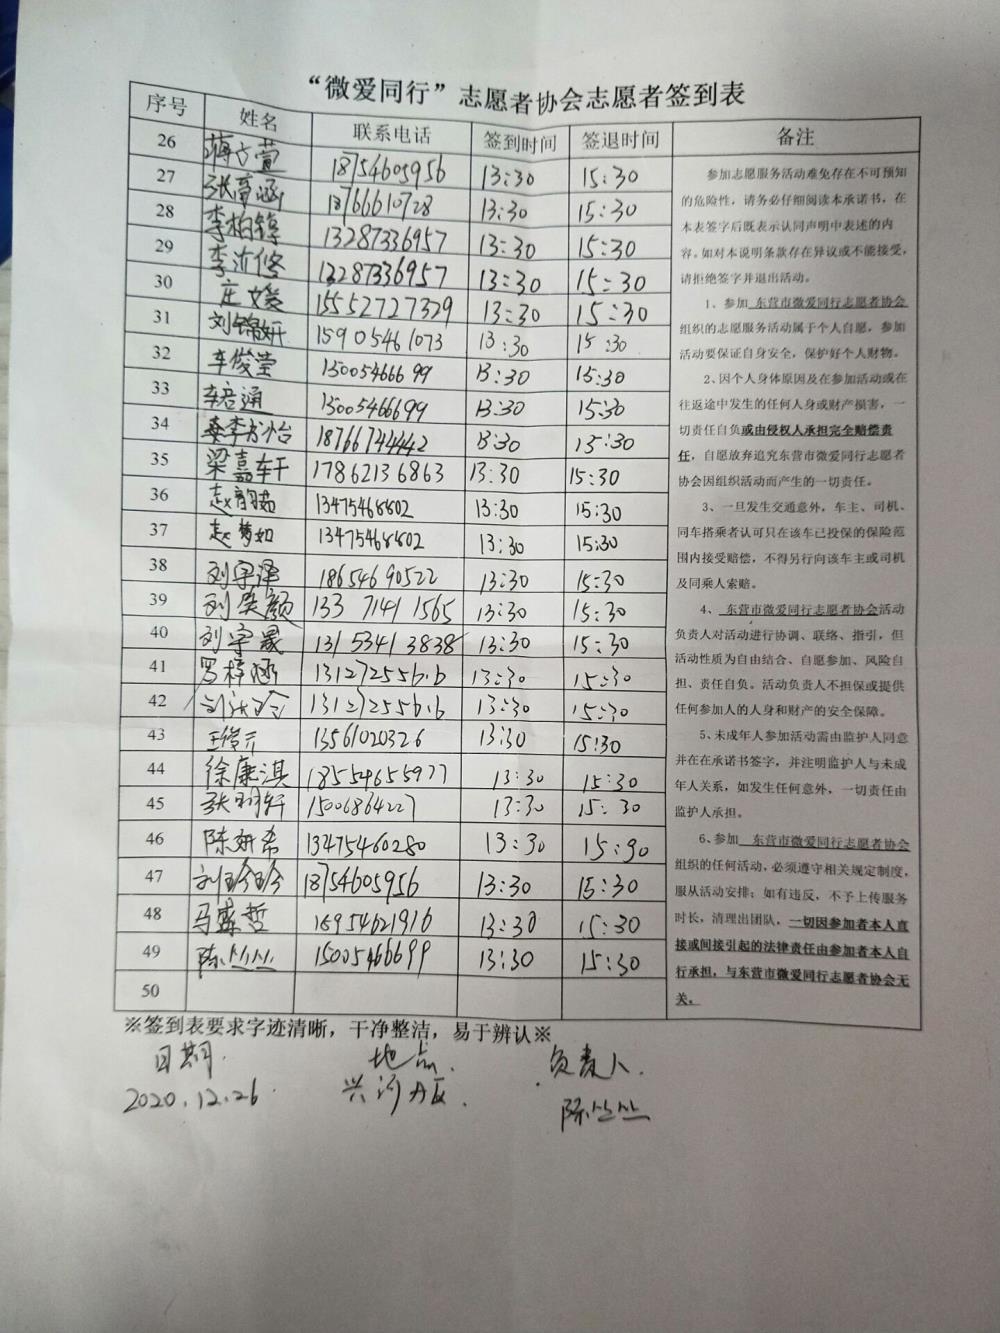 “微爱同行”志愿者协会志愿者签到表
序号 姓名 联系电话 签到时间 签退时间 备注
26 蒋立萱 18754605956 13:30 15:30
27 张育涵 18766610728 13:30 15:30
28 李柏锌 13287336957 13:30 15:30
29 李沂修 13287336957 13:30 15:30
30 庄文爱 15552727329 13:30 15:30
31 刘锦妍 15905461073 13:30 15:30
32 车俊莹 15005466699 13:30 15:30
33 车培通 15005466699 13:30 15:30
34 秦李书怡 18766744442 13:30 15:30
35 梁嘉轩 17862136863 13:30 15:30
36 赵 13475468802 13:30 15:30
37 赵梦如 13475468802 13:30 15:30
38 刘宇泽 18654690522 13:30 15:30
39 刘奕颜 133 7141 1565 13:30 15:30
40 刘宇晟 131 5341 3838 13:30 15:30
41 罗梓涵 13127255616 13:30 15:30
42 刘 13127255616 13:30 15:30
43 王俊亓 13561020326 13:30 15:30
44 徐康淇 18554655977 13:30 15:30
45 张翔轩 15006864227 13:30 15:30
46 陈妍希 13475460280 13:30 15:30
47 刘玲玲 18754605956 13:30 15:30
48 马盛哲 18954621916 13:30 15:30
49 陈丛丛 15005466699 13:30 15:30
50
参加志愿服务活动难免存在不可预知
的危险性，请务必仔细阅读本承诺书，在
本表签字后既表示认同声明中表述的内
容。如对本说明条款存在异议或不能接受，
请拒绝签字并退出活动。
1、参加 东营市微爱同行志愿者协会
组织的志愿服务活动属于个人自愿，参加
活动要保证自身安全，保护好个人财物。
2、因个人身体原因及在参加活动或在
往返途中发生的任何人身或财产损害，一
切责任自负或由侵权人承担完全赔偿责
任，自愿放弃追究东营市微爱同行志愿者
协会因组织活动而产生的一切责任。
3、一旦发生交通意外，车主、司机、
同车搭乘者认可只在该车已投保的保险范
围内接受赔偿，不得另行向该车主或司机
及同乘人索赔。
4、 东营市微爱同行志愿者协会活动
负责人对活动进行协调、联络、指引，但
活动性质为自由结合、自愿参加、风险自
担、责任自负。活动负责人不担保或提供
任何参加人的人身和财产的安全保障。
5、未成年人参加活动需由监护人同意
并在在承诺书签字，并注明监护人与未成
年人关系，如发生任何意外，一切责任由
监护人承担。
6、参加 东营市微爱同行志愿者协会
组织的任何活动，必须遵守相关规定制度，
服从活动安排；如有违反，不予上传服务
时长，清理出团队，一切因参加者本人直
接或间接引起的法律责任由参加者本人自
行承担，与东营市微爱同行志愿者协会无
关。
※签到表要求字迹清晰，干净整洁，易于辨认※
日期 地点 负责人
2020.12.26 兴河A区 陈丛丛